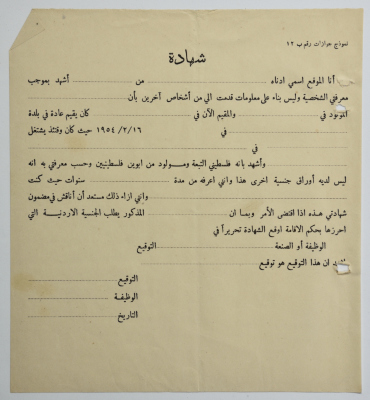 نموذج جوازات رقم ب ١٢
شهادة
أنا الموقع اسمي ادناه من أشهد بموجب
معرفتي الشخصية وليس بناء على معلومات قدمت الي من أشخاص آخرين بأن
المولود في والمقيم الآن في كان يقيم عادة في بلدة
في ١٩٥٤/٢/١٦ حيث كان وقتئذ يشتغل
في
وأشهد بانه فلسطيني التبعة ومولود من ابوين فلسطينيين وحسب معرفتي به انه
ليس لديه أوراق جنسية اخرى هذا وانني اعرفه من مدة سنوات حيث كنت
وانني ازاء ذلك مستعد أن أناقش في مضمون
شهادتي هذه اذا اقتضى الأمر وبما ان المذكور يطلب الجنسية الاردنية التي
احرزها بحكم الاقامة اوقع الشهادة تحريراً في
الوظيفة أو الصنعة التوقيع
ان هذا التوقيع هو توقيع
التوقيع
الوظيفة
التاريخ